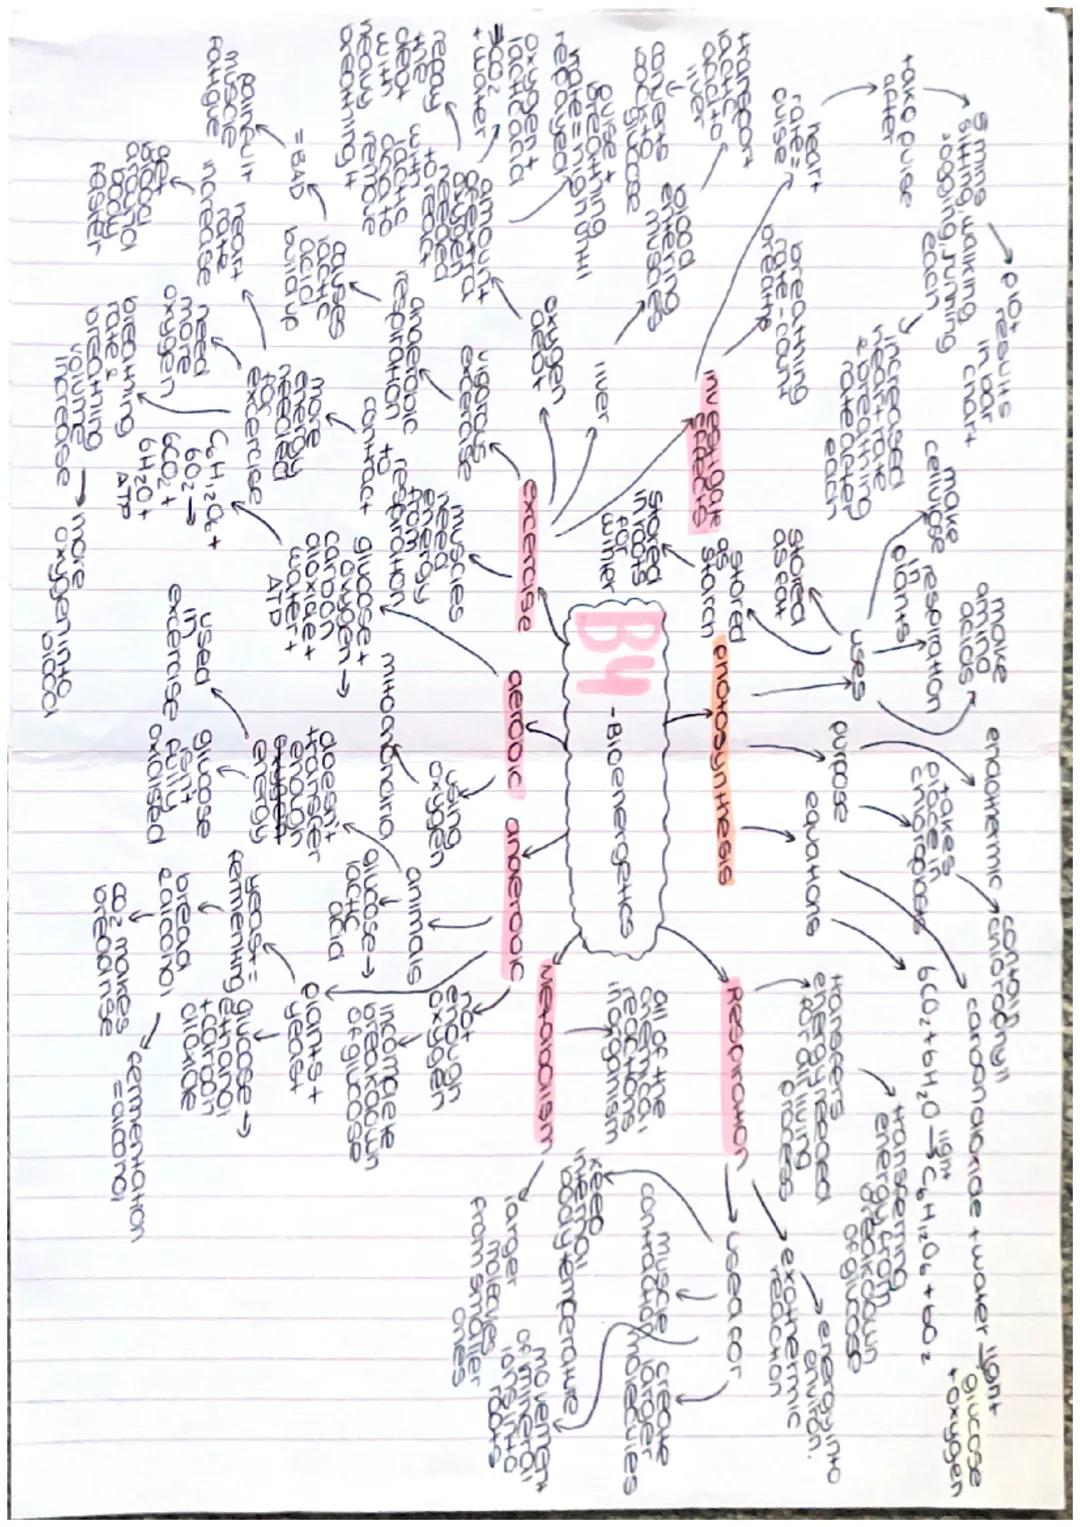 B4
-Bioenergetics
photosynthesis
uses
make
amino
acids
respiration
in
plants
make
cellulose
stored
as eat
stored
as
starch
stored
in roots
for
winter
purpose
endothermic
takes
place in
chloroplasts
contain
chlorophyll
equations
carbon dioxide + water light glucose
+ oxygen
6CO2 + 6H2O light → C6H12O6 + 6O2
Respiration
transfers
energy needed
for all living
process
transferring
energy from
breakdown
of glucose
exothermic
reaction
energy into
environ.
used for
create
larger
molecules
muscle
contraction
keep
internal
body temperature
movement
of mineral
ions into
roots
Metabolism
all of the
chemical
reactions
in organism
larger
molecules
from smaller
ones
anaerobic
not
enough
oxygen
incomplete
breakdown
of glucose
plants +
yeast
glucose →
ethanol
+ carbon
dioxide
yeast =
fermenting
bread
& alcohol
fermentation
= alcohol
CO2 makes
bread rise
animals
glucose →
lactic
acid
doesn't
transfer
enough
energy
glucose
isn't
fully
oxidised
used
in
excercise
aerobic
using
oxygen
mitochondria
glucose +
oxygen →
carbon
dioxide +
water +
ATP
C6H12O6 +
6O2 →
6CO2 +
6H2O +
ATP
excercise
muscles
need
energy
from
respiration
to
contract
more
energy
needed
for
excercise
need
more
oxygen
heart
rate
increase
get
blood
around
body
faster
breathing
rate &
breathing
volume
increase
→ more
oxygen into
blood
vigorous
excercise
anaerobic
respiration
causes
lactic
acid
build up
= BAD
pain with
muscle
fatigue
oxygen
debt
amount
of extra
oxygen
needed
to react
with
lactic
acid to
remove
it
repay
the
debt
with
heavy
breathing
oxygen +
lactic acid
→ CO2
+ water
pulse +
breathing
rate = high until
repayed
liver
blood
entering
muscles
transport
lactic
acid to
liver
converts
back to
glucose
investigate
effects
breathing
rate - count
breaths
heart
rate =
pulse
take pulse
after
5 mins
sitting, walking,
jogging, running
each
plot results
in bar
chart
increased
heart rate
& breathing
rate after
each